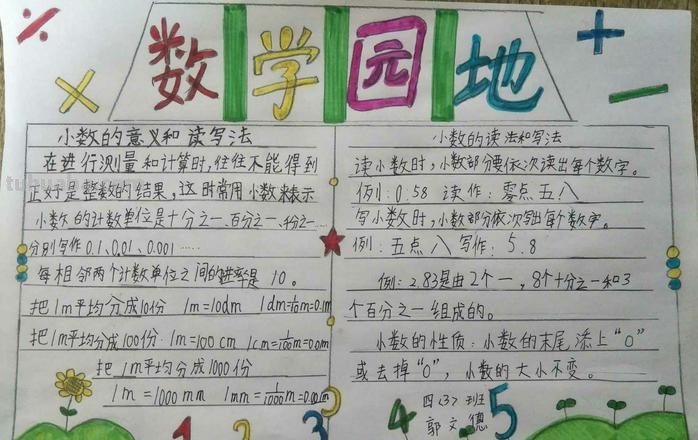 数学园地
小数的意义和读写法
在进行测量和计算时,往往不能得到
正好是整数的结果,这时常用小数来表示
小数的计数单位是十分之一、百分之一、千分之一……
分别写作0.1、0.01、0.001……
每相邻两个计数单位之间的进率是10。
把1m平均分成10份 1m=10dm 1dm=1/10m=0.1m
把1m平均分成100份 1m=100cm 1cm=1/100m=0.01m
把1m平均分成1000份
1m=1000mm 1mm=1/1000m=0.001m
小数的读法和写法
读小数时,小数部分要依次读出每个数字。
例:0.58 读作:零点五八
写小数时,小数部分依次写出每个数字。
例:五点八 写作:5.8
例:2.83是由2个一,8个十分之一和3
个百分之一组成的。
小数的性质:小数的末尾添上“0”
或去掉“0”,小数的大小不变。
四(3)班
郭文德
1 2 3 4 5